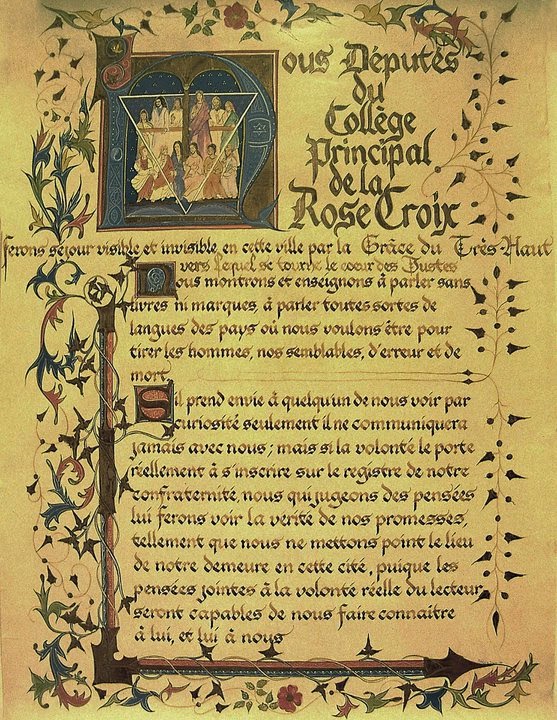 Nous Députés
du
Collège
Principal
de la
Rose Croix
ferons séjour visible et invisible, en cette ville par la Grâce du Très Haut
vers Lequel se tourne le coeur des Justes
Nous montrons et enseignons à parler sans
livres ni marques, à parler toutes sortes de
langues des pays où nous voulons être pour
tirer les hommes, nos semblables, d'erreur et de
mort
S'il prend envie à quelqu'un de nous voir par
curiosité seulement il ne communiquera
jamais avec nous; mais si la volonté le porte
réellement à s'inscrire sur le registre de notre
confraternité, nous qui jugeons des pensées
lui ferons voir la vérité de nos promesses,
tellement que nous ne mettons point le lieu
de notre demeure en cette cité, puique les
pensées jointes à la volonté réelle du lecteur
seront capables de nous faire connaitre
à lui, et lui à nous